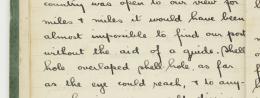 country was open to our view for
miles & miles it would have been
almost impossible to find our post
without the aid of a guide. Shell
hole overlaped shell hole as far
as the eye could reach, & to any-